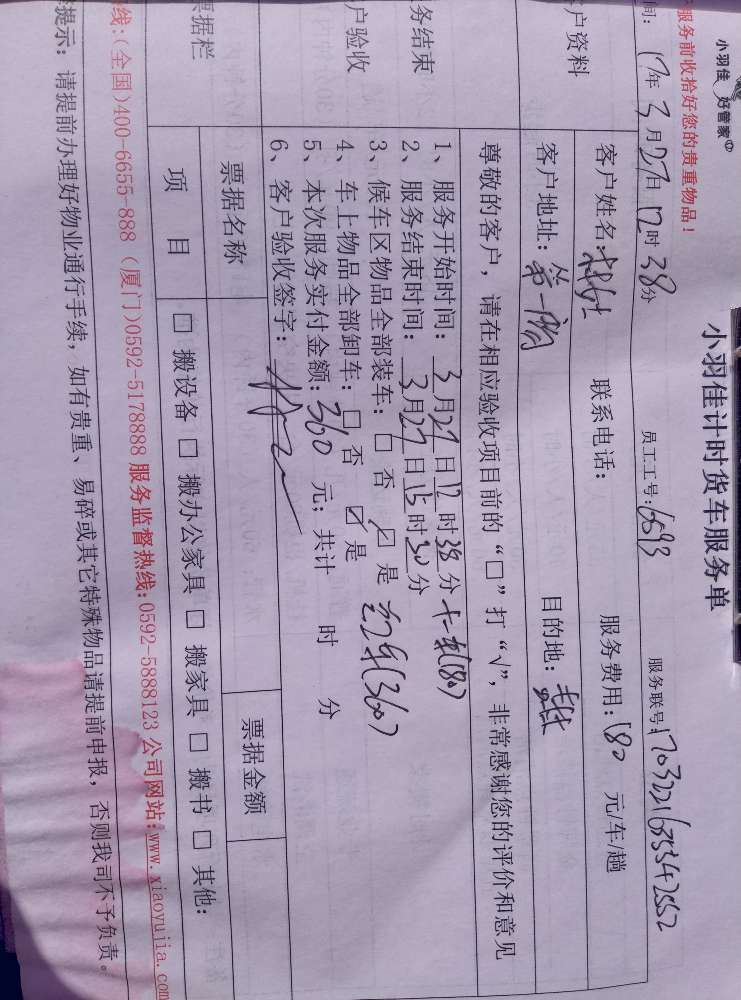 小羽佳 好管家
小羽佳计时货车服务单
服务前收拾好您的贵重物品！
员工工号：6693
服务联号：
间：17年3月27日12时38分
户资料
客户姓名：
联系电话：
服务费用：180 元/车/趟
客户地址：第一
目的地：
尊敬的客户，请在相应验收项目前的“□”打“√”，非常感谢您的评价和意见
务结束
户验收
1、服务开始时间：3月27日12时38分
2、服务结束时间：3月27日15时30分
3、候车区物品全部装车：□ 否 ☑ 是 2车(360)
4、车上物品全部卸车：□ 否 ☑ 是
5、本次服务实付金额：360 元；共计 时 分
6、客户验收签字：
票据栏
票据名称
票据金额
项 目
□ 搬设备 □ 搬办公家具 □ 搬家具 □ 搬书 □ 其他：
线：(全国)400-6655-888 (厦门)0592-5178888 服务监督热线：0592-5888123 公司网站：www.xiaoyujia.com
提示：请提前办理好物业通行手续，如有贵重、易碎或其它特殊物品请提前申报，否则我司不予负责。